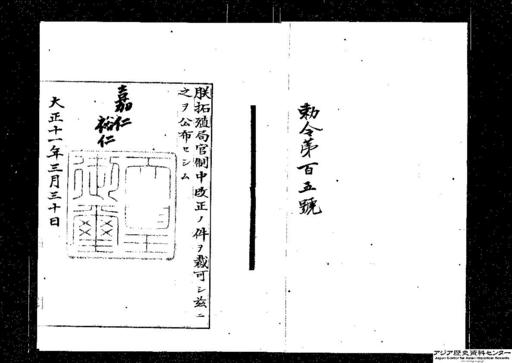 勅令第百五號
朕拓殖局官制中改正ノ件ヲ裁可シ茲ニ
之ヲ公布セシム
嘉仁
裕仁
天皇御璽
大正十一年三月三十日
アジア歴史資料センター
Japan Center for Asian Historical Records